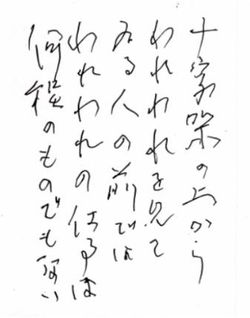 十字架の上から
われわれを見て
ゐる人の前では
われわれの仕事は
何程のものでもない